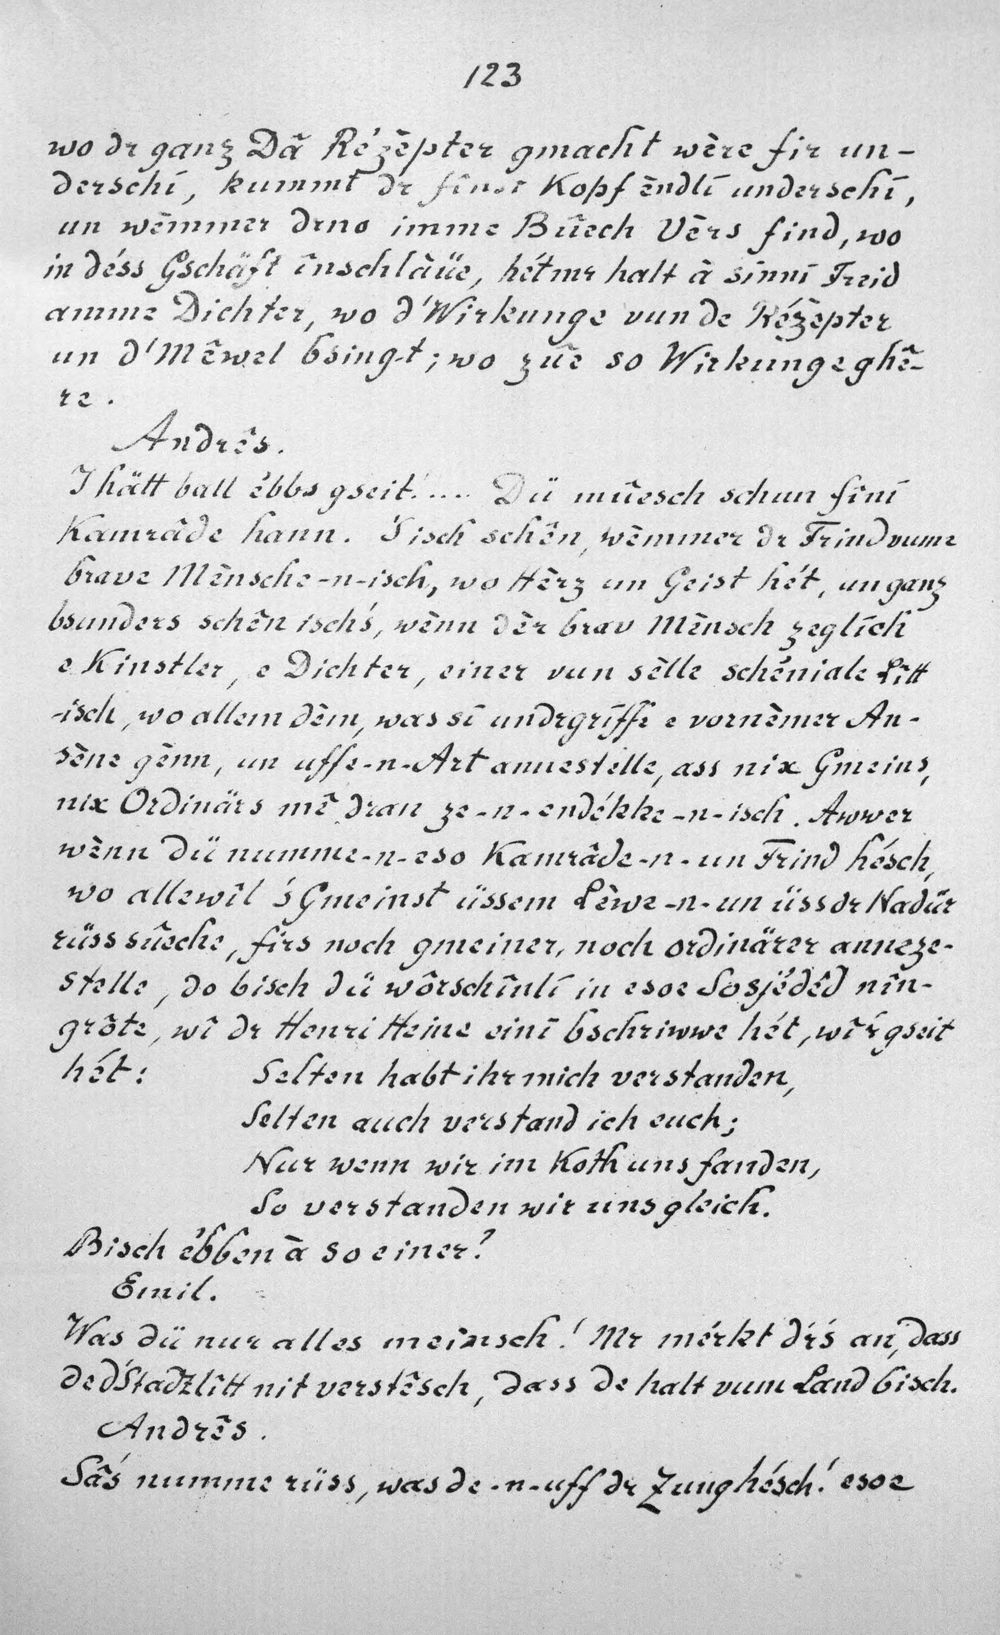 123
wo dr ganz Dâ Rézèpter gmacht wère fir un-
derschi, kummt dr Kopf èndlî underschi,
un wèmmer drno imme Bûech Vèrs find, wo
in déss Gschäft înschlàüe, hétmr halt à sînnî Freid
amme Dichter, wo d'Wirkunge vun de Rézèpter
un d'Mêwel bsingt; wo zûe so Wirkunge ghê-
re.
Andrês.
I hätt ball ébbs gseit!.... Dü mûesch schun fînî
Kamrâde hann. 'S isch schên, wèmmer dr Frind vume
brave Mènsche-n-isch, wo Hèrz un Geist hét, un ganz
bsunders schên isch's, wènn dèr brav Mènsch zeglîch
e Kinstler, e Dichter, einer vun sèlle schéniale Lîtt
-isch, wo allem dèm, was sî undrgrîffe e vornèmer An-
sène gènn, un uffe-n-Art annestelle, ass nix Gmeins,
nix Ordinärs mê dran ze-n-endékke-n-isch. Awwer
wènn dü numme-n-eso Kamrâde-n-un Frind hésch,
wo allewîl 's Gmeinst üssem Lèwe-n-un üss dr Nadür
rüss sûeche, firs noch gmeiner, noch ordinärer anneze-
stelle, do bisch dü wôrschînlî in esoe Sosjédêd nîn-
grôte, wî dr Henri Heine einî bschriwwe hét, wî'r gseit
hét: Selten habt ihr mich verstanden,
Selten auch verstand ich euch;
Nur wenn wir im Koth uns fanden,
So verstanden wir uns gleich.
Bisch ébben à so einer?
Emil.
Was dü nur alles meinsch! Mr mérkt dir's an, dass
de d'Stadtlîtt nit verstêsch, dass de halt vum Land bisch.
Andrês.
Sâ's numme rüss, was de-n-uff dr Zung hésch! esoe